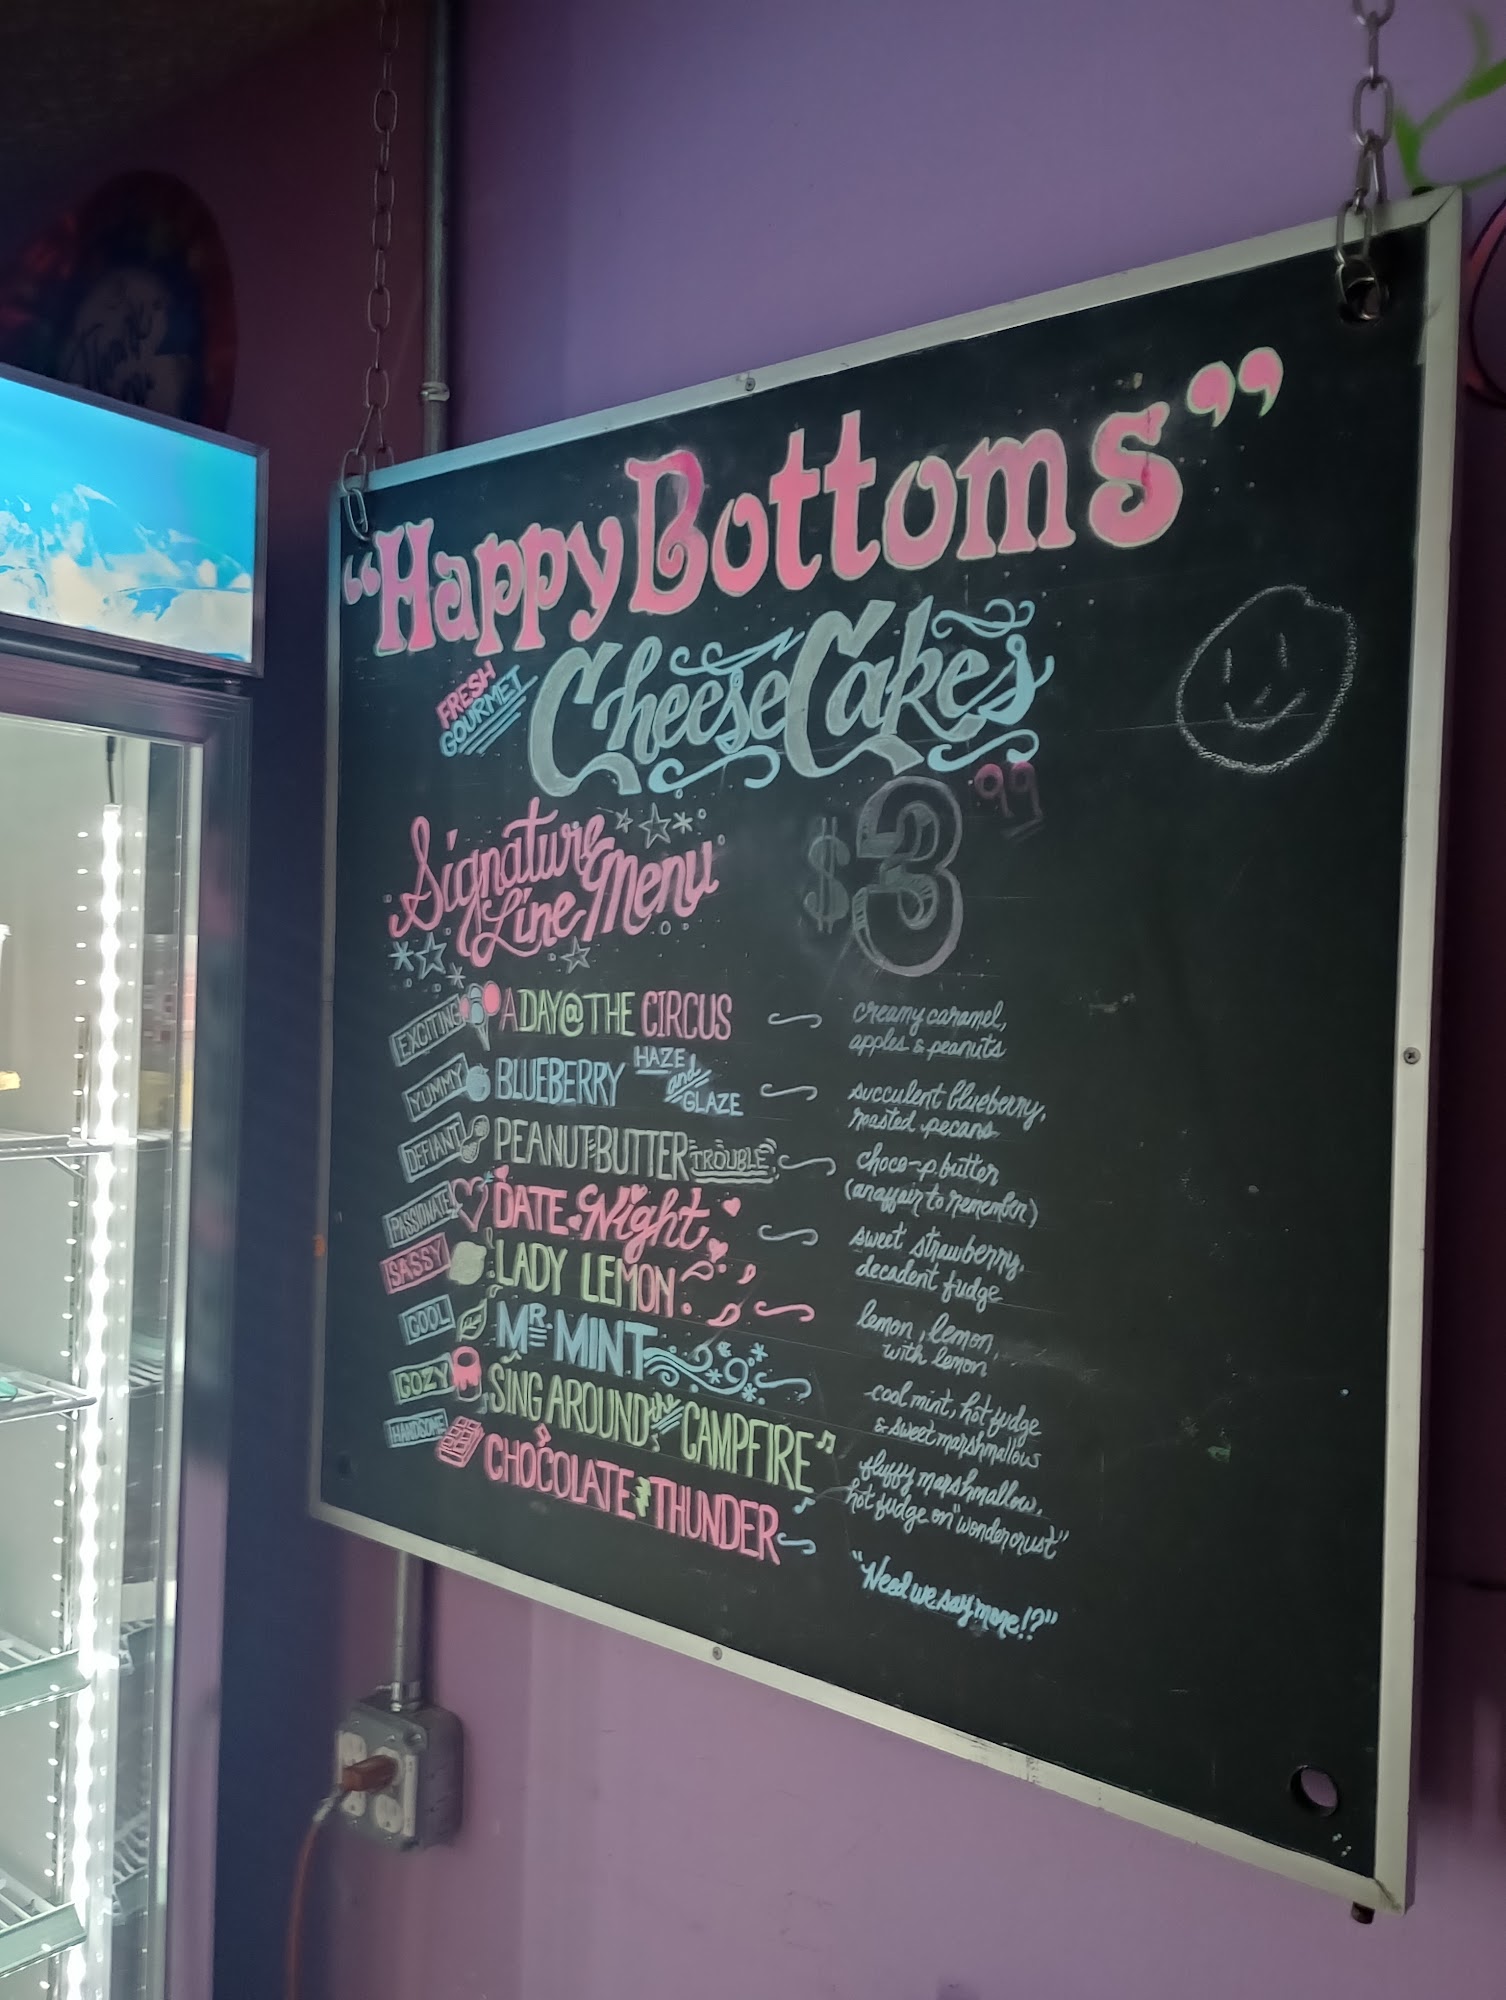 Thank
"Happy Bottoms"
FRESH
GOURMET
CheeseCakes
$3.99
Signature
Line Menu
EXCITING A DAY @ THE CIRCUS creamy caramel,
apples & peanuts
YUMMY BLUEBERRY HAZE and GLAZE succulent blueberry,
roasted pecans
DEFIANT PEANUT-BUTTER TROUBLE choco-p.butter
(an affair to remember)
PASSIONATE DATE Night sweet strawberry,
decadent fudge
SASSY LADY LEMON lemon, lemon,
with lemon
COOL MR. MINT cool mint, hot fudge
& sweet marshmallow
COZY SING AROUND the CAMPFIRE fluffy marshmallow,
hot fudge on "wondercrust"
HANDSOME CHOCOLATE THUNDER "Need we say more!?"